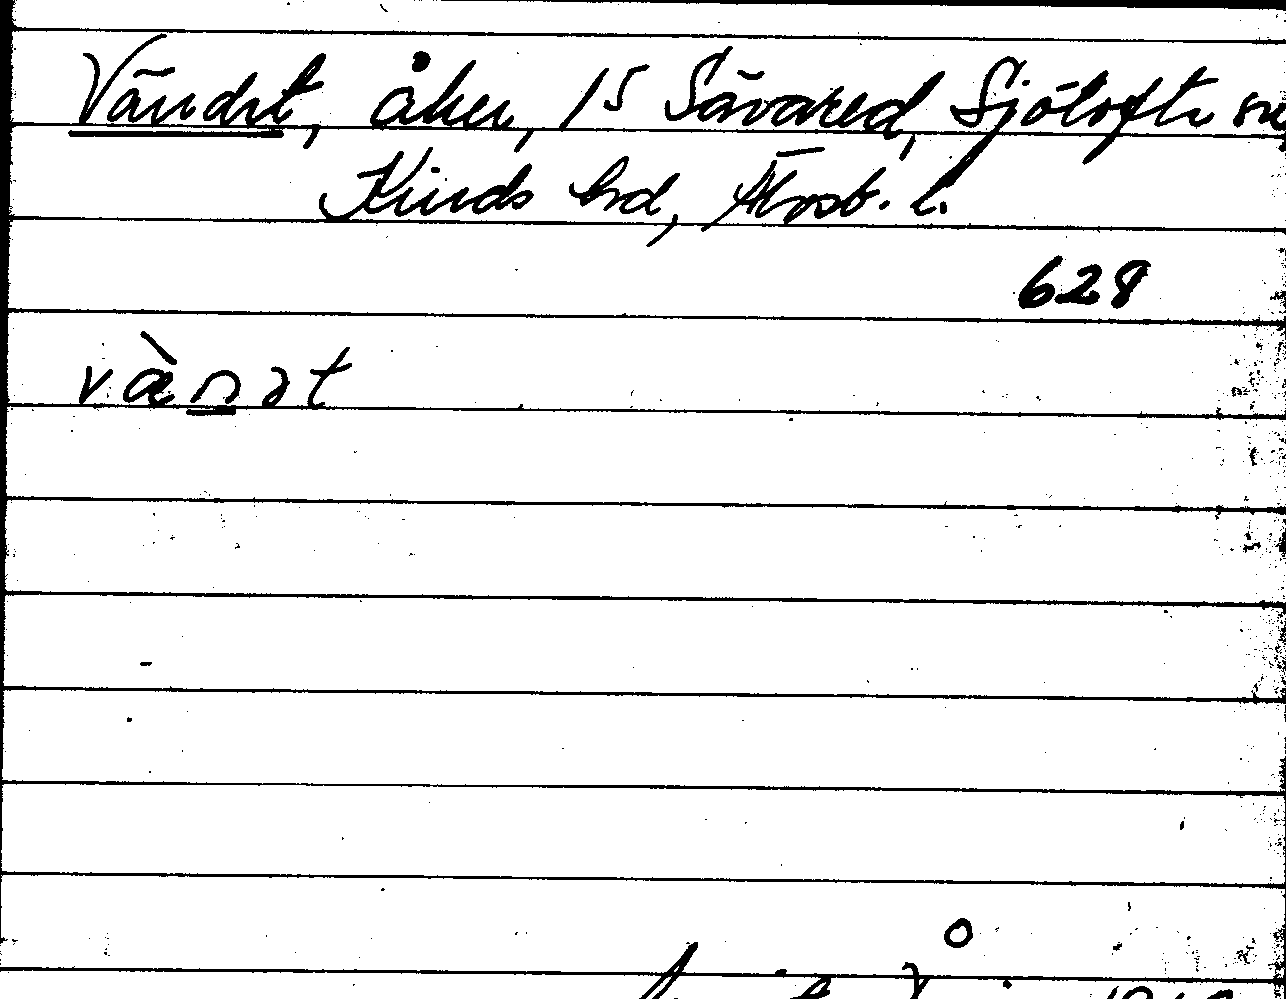 Vändet, åker, 15 Sävared, Sjötofta sn
Kinds hd, Älvsb. l.
628
vä̀n̲ət